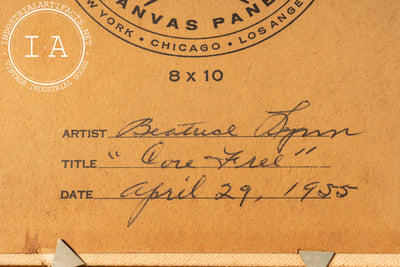 INDUSTRIALARTIFACTS.NET
IA
VINTAGE INDUSTRIAL GOODS
CANVAS PANEL
NEW YORK • CHICAGO • LOS ANGELES
8 x 10
ARTIST Beatrice Lynn
TITLE "Core Free"
DATE April 29, 1955